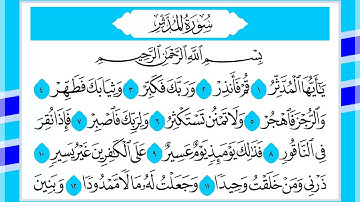 سُورَةُ المُدَّثِّر
بِسْمِ اللَّهِ الرَّحْمَٰنِ الرَّحِيمِ
يَٰٓأَيُّهَا ٱلْمُدَّثِّرُ ١ قُمْ فَأَنذِرْ ٢ وَرَبَّكَ فَكَبِّرْ ٣ وَثِيَابَكَ فَطَهِّرْ ٤
وَٱلرُّجْزَ فَٱهْجُرْ ٥ وَلَا تَمْنُن تَسْتَكْثِرُ ٦ وَلِرَبِّكَ فَٱصْبِرْ ٧ فَإِذَا نُقِرَ
فِي ٱلنَّاقُورِ ٨ فَذَٰلِكَ يَوْمَئِذٍ يَوْمٌ عَسِيرٌ ٩ عَلَى ٱلْكَٰفِرِينَ غَيْرُ يَسِيرٍ ١٠
ذَرْنِي وَمَنْ خَلَقْتُ وَحِيدًا ١١ وَجَعَلْتُ لَهُۥ مَالًا مَّمْدُودًا ١٢ وَبَنِينَ